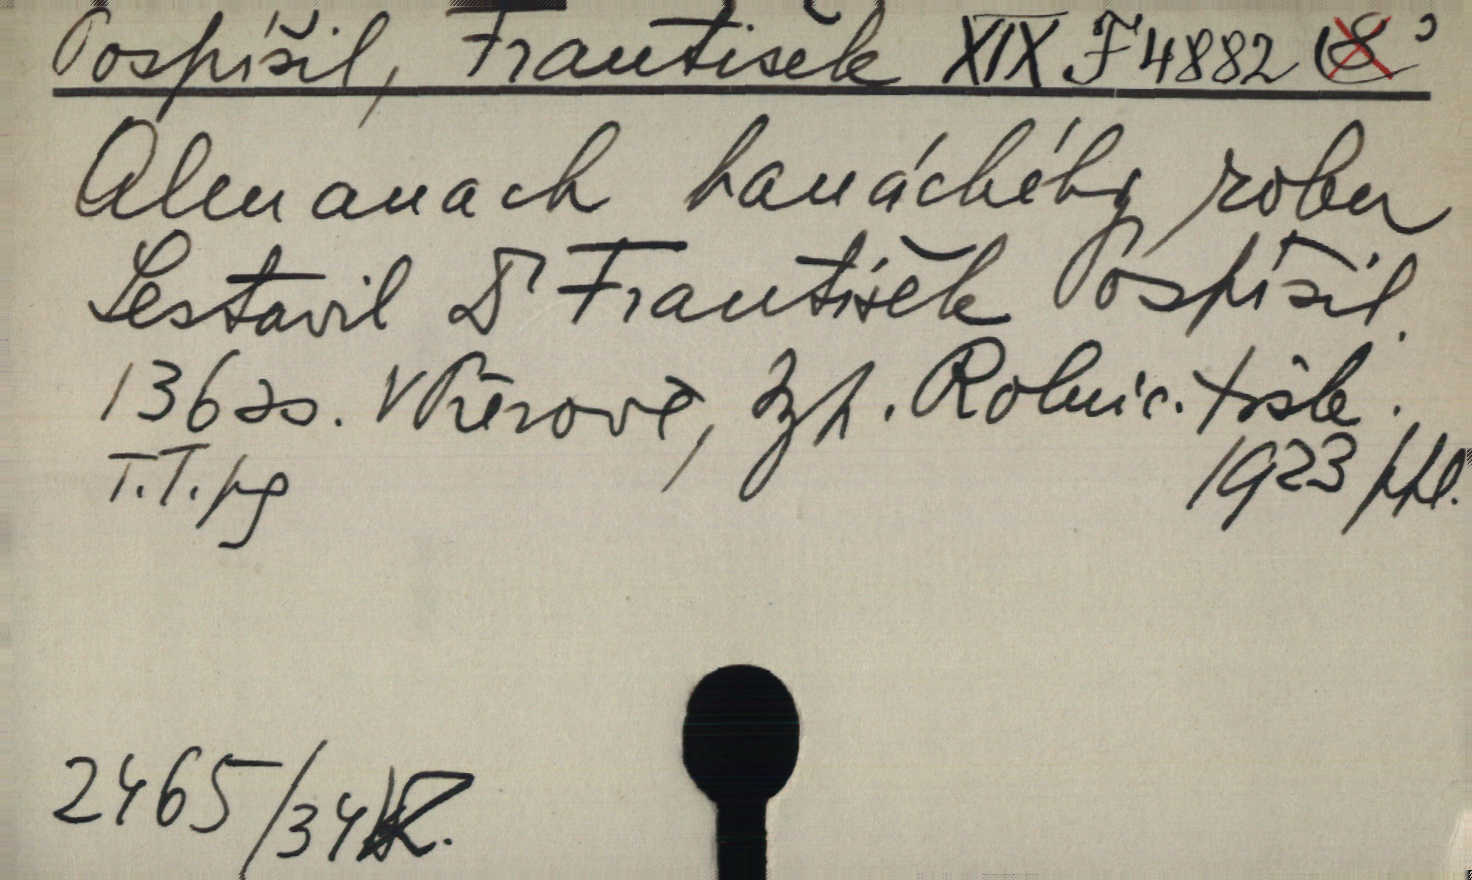 Pospíšil, František XIX F 4882
Almanach hanáckého robu
Sestavil Dr František Pospíšil.
136 ss. V Přerově, Rolnic. tisk.
T.T. pg 1923 ppl.
2465/34